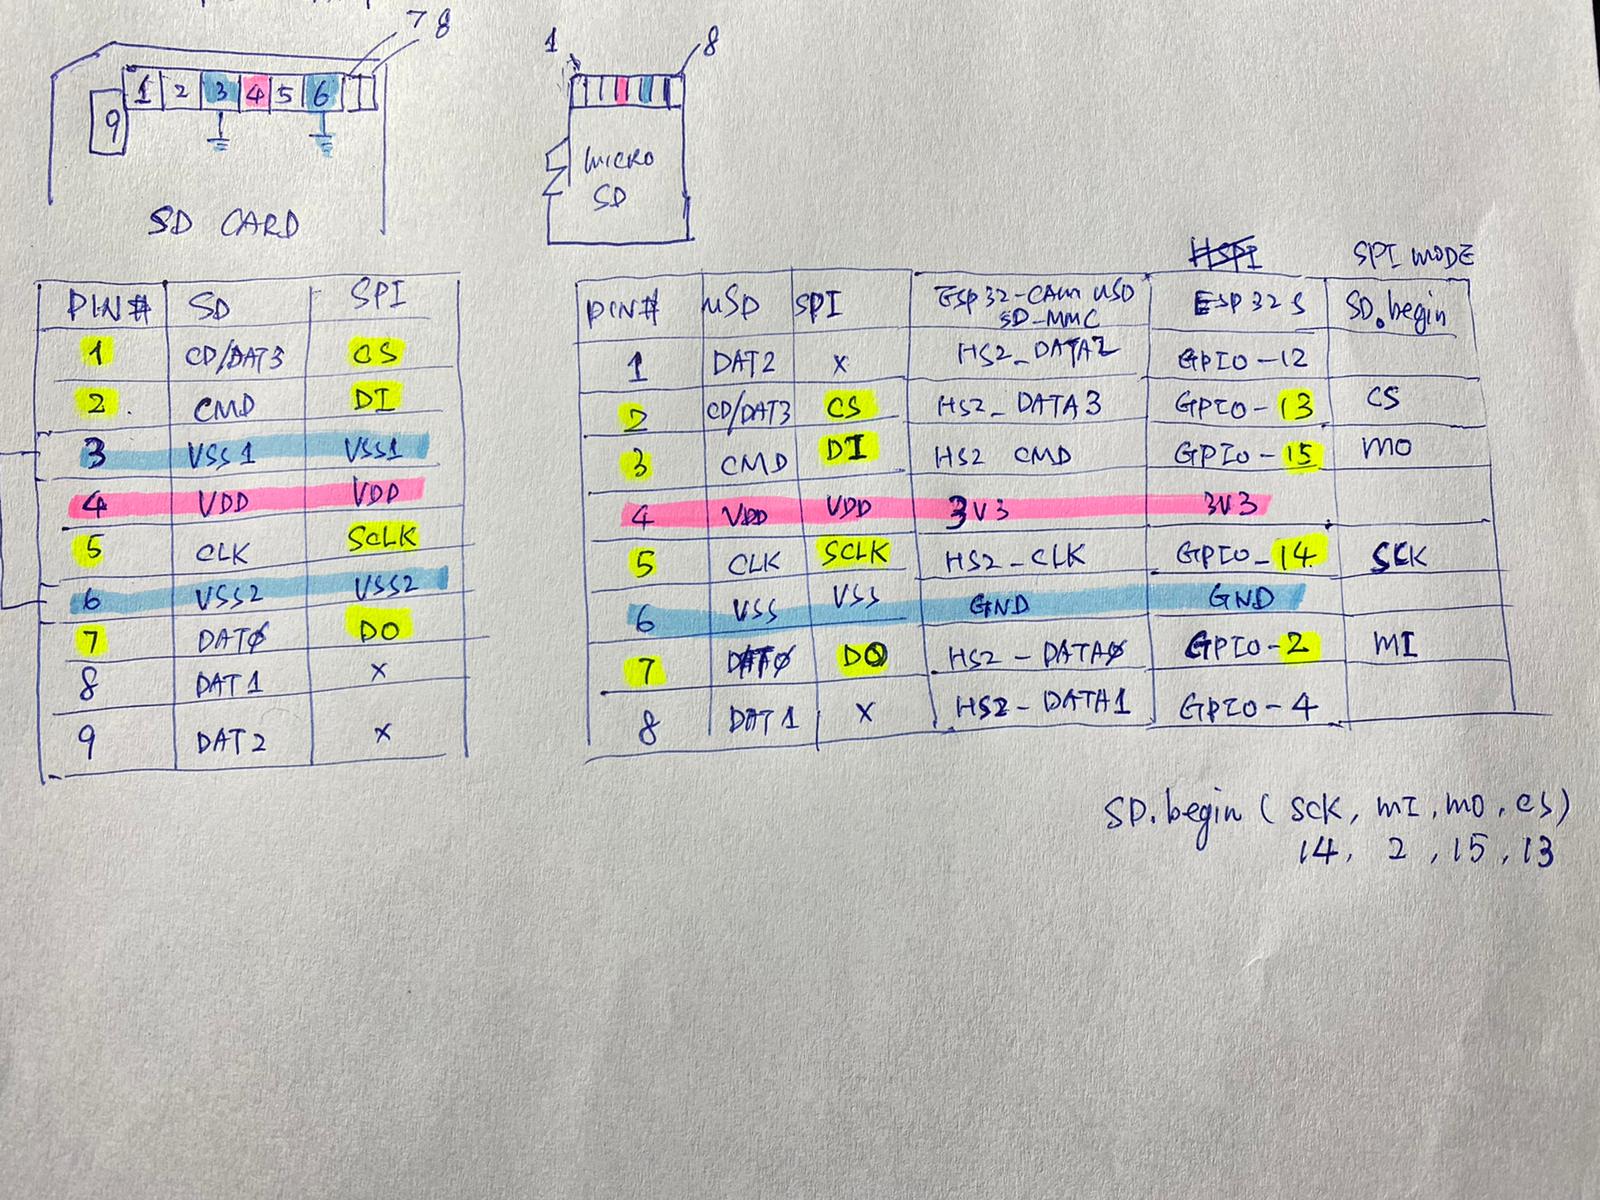 7 8
1 2 3 4 5 6
9
SD CARD
1 8
MICRO
SD
PIN# SD SPI
1 CD/DAT3 CS
2 . CMD DI
3 VSS1 VSS1
4 VDD VDD
5 CLK SCLK
6 VSS2 VSS2
7 DATØ DO
8 DAT1 X
9 DAT2 X
HSPI SPI MODE
PIN# uSD SPI ESP32-CAM uSD SD-MMC ESP32S SD.begin
1 DAT2 X HS2_DATA2 GPIO-12
2 CD/DAT3 CS HS2_DATA3 GPIO-13 CS
3 CMD DI HS2 CMD GPIO-15 MO
4 VDD VDD 3V3 3V3
5 CLK SCLK HS2_CLK GPIO_14 SCK
6 VSS VSS GND GND
7 DATØ DO HS2-DATAØ GPIO-2 MI
8 DAT1 X HS2-DATA1 GPIO-4
SD.begin (SCK, MI, MO, CS)
14, 2, 15, 13